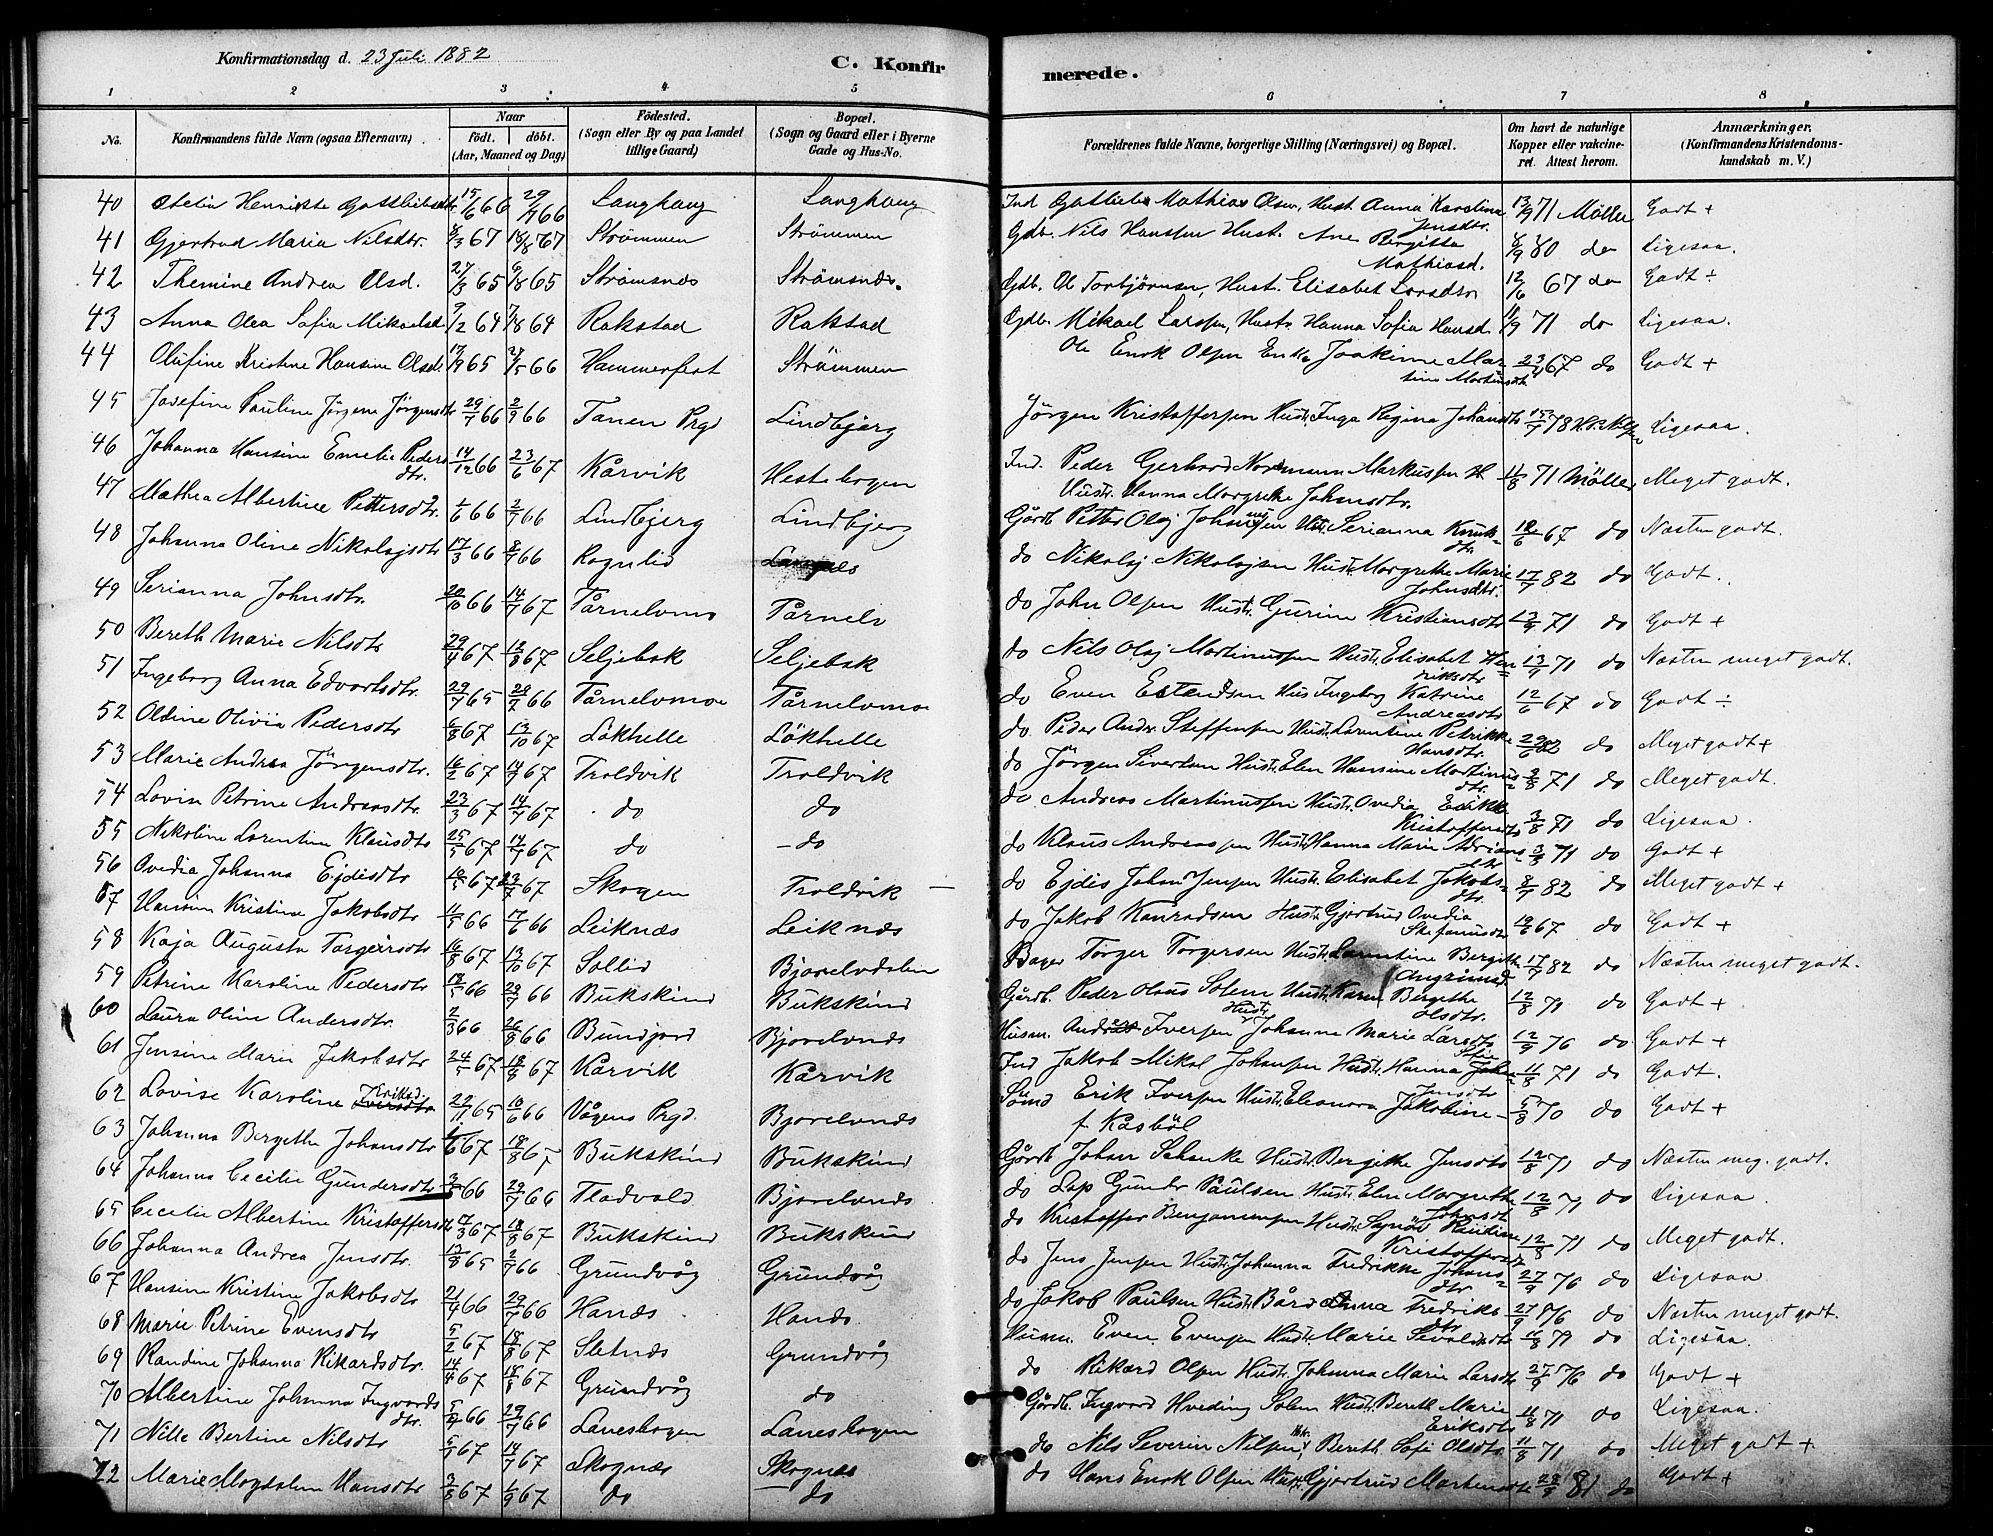 Konfirmationsdag d. 23 Juli 1882
C. Konfirmerede.
1 2 3 4 5 6 7 8
No. Konfirmandens fulde Navn (ogsaa Efternavn) Naar födt. döbt. (Aar, Maaned og Dag) Födested. (Sogn eller By og paa Landet tillige Gaard) Bopæl. (Sogn og Gaard eller i Byerne Gade og Hus-No. Forældrenes fulde Navne, borgerlige Stilling (Næringsvei) og Bopæl. Om havt de naturlige Kopper eller vakcineret. Attest herom. Anmærkninger. (Konfirmandens Kristendomskundskab m. V.)
40 Henrikke 15/6 66 29/7 66 Langhaug Langhaug Ind Mathias Olsen, Hust. Anna Karolina Jensdtr. 13/9 71 Möller Godt +
41 Gjertrud Maria Nilsdtr. 8/3 67 18/8 67 Strömmen Strömmen Gdb. Nils Hansen Hust. Ane Bergitta Mathiasd. 80 do Ligesaa.
42 Themine Andrea Olsd. 27/3 65 65 Strömsnes Strömsnes. Gdb. Ol Torbjörnsen, Hust. Elisabet Larsdtr 12/6 67 do Godt ÷
43 Anna Olea Sofia Mikaelsd. 9/2 64 7/8 64 Rakstad Rakstad Gdb. Mikael Larsen, Hustr. Hanna Sofia Hansd. 11/9 71 do Ligesaa.
44 Olufine Kristine Hansine Olsdt 17/9 65 66 Hammerfest Strömmen Enok Olsen Enke Joakime Martine 23/4 67 do Godt +
45 Josefine Pauline Jörgine Jörgensdtr 29/7 66 2/9 66 Tanen Prgd Lindbjerg Jörgen Kristoffersen Hustr. Inga Regina Johansdtr 78 Ligesaa.
46 Johanna Hansine Emelie Pedersdtr. 14/12 66 23/6 67 Kårvik Hestebogen Ind. Peder Gerhard Nordmann Markussen Hustr. Hanna Margrethe Johansdtr. 11/8 71 Möller Meget godt.
47 Mathea Albertine Pettersdtr. 1/6 66 2/7 66 Lindbjerg Lindbjerg Gårdb. Petter Olaj Johansen Hust. Serianna Knudsdtr. 12/6 67 do Næsten godt.
48 Johanna Oline Nikolajsdtr 17/3 66 8/7 66 Rognlid do Nikolaj Nikolajsen Hust. Margrethe Marie Johnsdtr. 17/7 82 do Godt.
49 Serianna Johnsdtr. 20/10 66 14/7 67 Tårnelvmo Tårnelv do John Olsen Hustr. Gurine Kristiansdtr 13/9 71 do Godt +
50 Bereth Marie Nilsdtr 29/4 67 18/8 67 Seljebak Seljebak do Nils Olaj Martinussen Hustr. Elisabet Henriksdtr 13/9 71 do Næsten meget godt.
51 Ingeborg Anna Edvartsdtr. 29/7 65 66 Tårnelvmoe Tårnelvmoe do Even Hus Ingeborg Katrine Andreasdtr 12/6 67 do Godt ÷
52 Oldine Olivia Pedersdtr 6/8 67 13/10 67 Lökhelle Lökhelle do Peder Andr. Steffensen Hustr. Larentine Petrikke Hansdtr. 29/6 82 do Meget godt +
53 Marie Andrea Jörgensdtr. 16/2 67 14/7 67 Troldvik Troldvik do Jörgen Sivertsen Hustr. Elen Hansine Martinusdtr. 3/8 71 do Meget godt.
54 Lovise Petrine Andreasdtr 23/3 67 14/7 67 do do do Andreas Martinussen Hustr. Ovedia Kristoffersdtr 3/8 71 do Ligesaa.
55 Nikoline Larentine Klausdtr 25/5 67 14/7 67 do do do Klaus Andreassen Hustr. Hanna Marie Adriansdtr 3/8 71 do Godt +
56 Ovedia Johanna Ejdisdtr 10/5 67 67 Skogen Troldvik do Ejdis Johan Jensen Hustr. Elisabet Jakobsdtr. 8/7 82 do Meget godt +
57 Hansine Kristine Jakobsdtr 66 17/6 66 Leiknæs Leiknæs do Jakob Konradsen Hust. Gjertrud Ovedia Stefanusdtr 12/6 67 do Godt +
58 Kaja Augusta Torgersdtr 16/8 67 13/10 67 Sollid Bjorelvdalen Bager Torger Torgersen Hustr. Larentine Bergithe 17/7 82 do Næsten meget godt.
59 Petrine Karoline Pedersdtr 66 29/7 66 Bukskind Bukskind Gårdb. Peder Olaus Solem Hustr. Karen Bergethe Olsdtr. 12/8 71 do Godt +
60 Laura Oline Andersdtr. 2/3 66 26/8 66 Bundjord Bjorelvnes Husm. Iversen Hustr Johanna Marie Larsdtr 12/9 76 do Godt +
61 Jensine Marie Jakobsdtr 24/5 67 18/8 67 Kårvik Kårvik Ind Jakob Mikal Johansen Hustr. Hanna Sofie Jensdtr 11/8 71 do Godt.
62 Lovise Karoline Eriksd. 22/11 65 10/6 66 Vågens Prgd. Bjorelvnes Erik Iversen Hustr. Eleonora Jakobine f. Kasböl 5/8 70 do Godt +
63 Johanna Bergethe Johansdtr 67 18/8 67 Bukskind Bukskind Gårdb Johan Schanke Hustr. Bergithe Jensdtr 12/8 71 do Næsten meg. godt.
64 Johanna Cecilie Gundersdtr 66 29/7 66 Bjorelvnes do Lap Gunder Paulsen Hustr. Elen Margrethe Johansdt 12/8 71 do Ligesaa.
65 Cecilie Albertine Kristoffersdtr 17/3 67 18/8 67 Bukskind Bukskind do Kristoffer Benjaminsen Hustr. Kristoffersd 12/8 71 do Meget godt.
66 Johanna Andrea Jensdtr. 13/8 65 2/7 66 Grundvåg Grundvåg do Jens Jensen Hustr. Johanna Fredrikke Johansdtr 27/9 76 do Ligesaa
67 Hansine Kristine Jakobsdtr 21/4 66 29/7 66 Hanæs Hanæs do Jakob Paulsen Hustr. Bård Anna Fredriksdtr 27/9 76 do Næsten meget godt.
68 Marie Petrine Evensdtr 5/2 67 18/8 67 Sletnæs Grundvåg Husm. Even Evensen Hustr. Marie Sevaldsdtr 11/8 71 do Ligesaa.
69 Randine Johanna Rikardsdtr. 14/4 67 18/8 67 Grundvåg do do Rikard Olsen Hustr. Johanna Marie Larsdtr 27/9 76 do Godt +
70 Albertine Johanna Ingvardsdtr. 66 29/7 66 Lanesbogen Lanesbogen Gårdb. Ingvard Hveding Solem Hustr. Bereth Marie Eriksdtr 11/8 71 do Ligesaa.
71 Nille Bertine Nilsdtr 67 14/7 67 Skognæs Skognæs do Nils Severin Nilsen, Bereth Sofi Olsdtr. 11/8 71 do Meget godt +
72 Marie Magdalene Hansdtr. 3/8 67 1/9 67 do do do Hans Enok Olsen Hustr Gjertrud Martensdtr 81 do Godt +